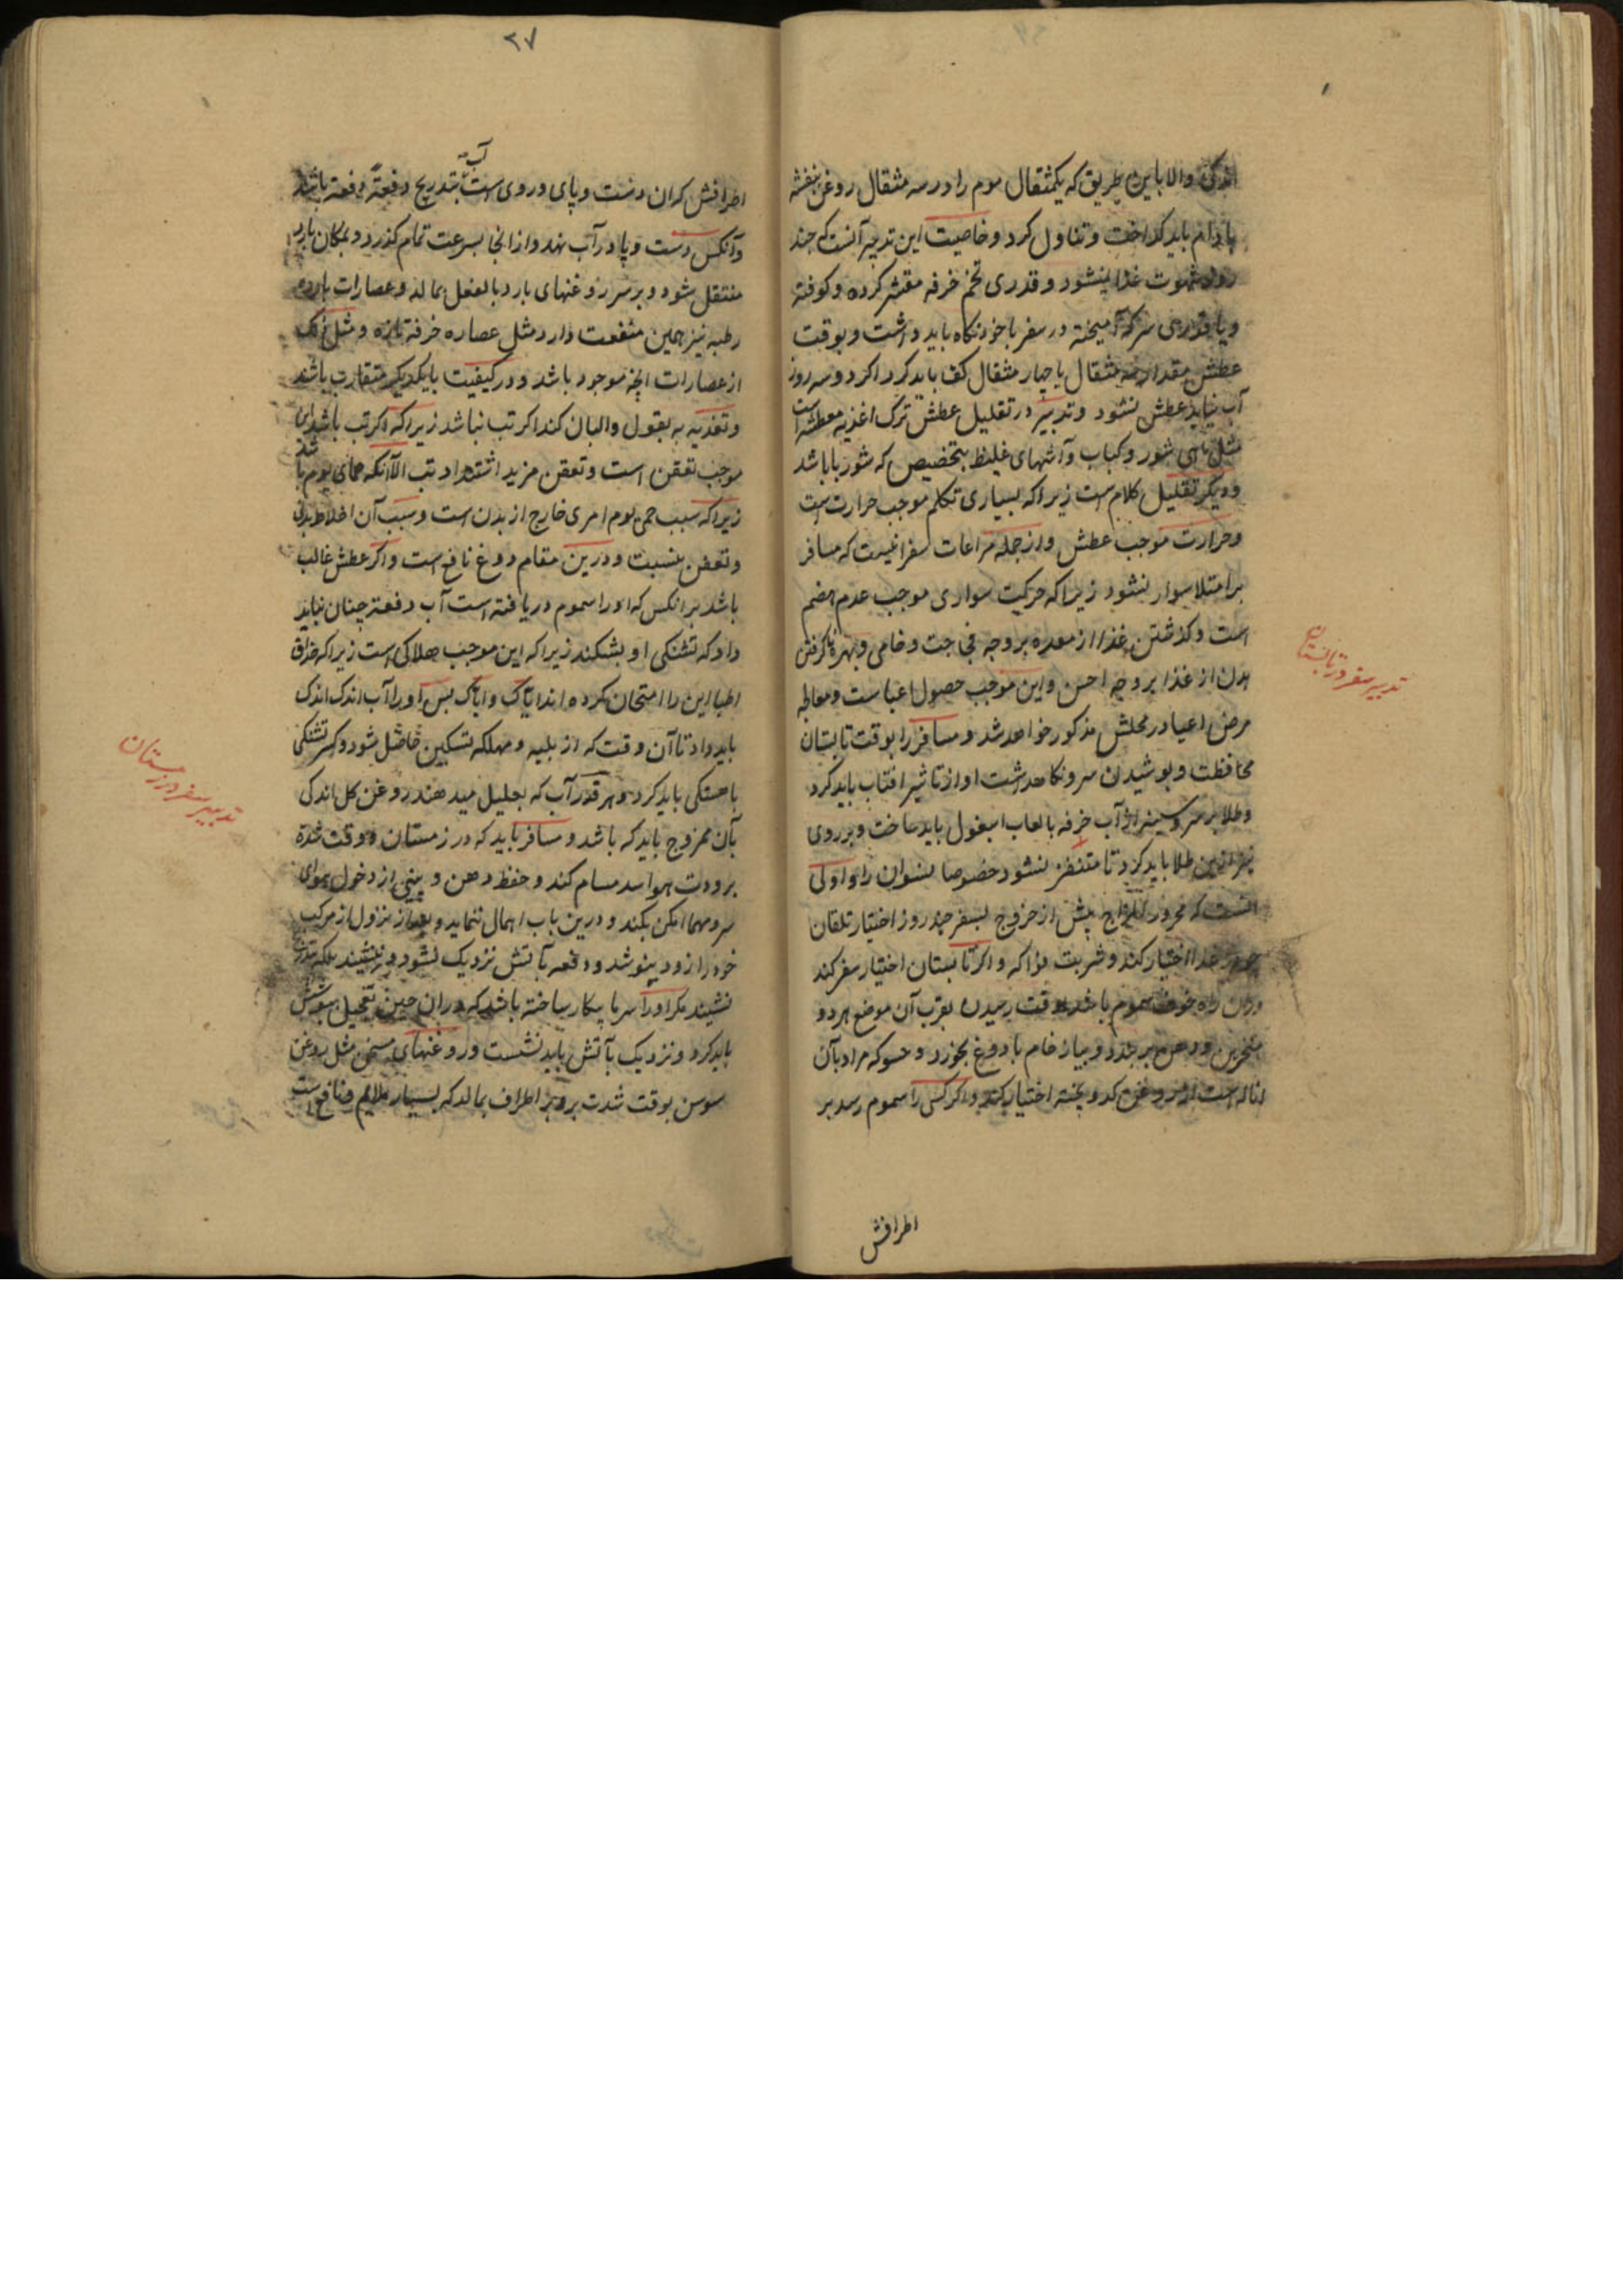 اندکی والا باین طریق که یکمثقال موم را در سه مثقال روغن بنفشه
بادام باید کداخت و تناول کرد و خاصیت این تدبیر آنست که چند
روز شهوت غذا نشود و قدری تخم خرفه مقشر کرده و کوفته
و با قدری سرکه آمیخته در سفر با خود نکاه باید داشت و بوقت
عطش مقدار سه مثقال یا چهار مثقال کف باید کرد اکر دو سه روز
آب نیابد عطش نشود و تدبیر در تقلیل عطش ترک اغذیه معطشه است
مثل ماهی شور و کباب و آشهای غلیظ بتخصیص که شوربا باشد
و دیکر تقلیل کلام است زیرا که بسیاری تکلم موجب حرارت است
و حرارت موجب عطش و از جمله مراعات سفر انیست که مسافر
بر امتلا سوار نشود زیرا که حرکت سواری موجب عدم هضم
است و کذشتن غذا از معده بر وجه فجاجت و خامی و بهره نا کرفتن
بدن از غذا بر وجه احسن و این موجب حصول اعیاست و معالجه
مرض اعیا در محلش مذکور خواهد شد و مسافر را بوقت تابستان
محافظت و پوشیدن سر و نکاهداشت او از تاثیر افتاب باید کرد
و طلا بر سر و سینه از آب خرفه با لعاب اسبغول باید ساخت و بر روی
نیز ازین طلا باید کرد تا متنفر نشود خصوصا نسوان را و اولی
انست که محرور المزاج پیش از خروج بسفر چند روز اختیار تلقان
جو غذا اختیار کند و شربت فواکه و اکر تابستان اختیار سفر کند
و در ان راه خوف سموم باشد بوقت رسیدن بقرب آن موضع هر دو
منخرین و دهن بر بندد و پیاز خام با دوغ بخورد و حسو که مراد بآن
است از روغن کدو پخته اختیار کند و اکر کسی را سموم رسد بر
اطرافش
تدبیر سفر در تابستان
۲۷
اطرافش که ان دست و پای و روی است آب بتدریج دفعة دفعة باشد
و آنکس دست و پا در آب نهد و از انجا بسرعت تمام کذرد و بمکان بارد
منتقل شود و بر سر روغنهای بارد بالفعل بمالد و عصارات بارده
رطبه نیز همین منفعت دارد مثل عصاره خرفه تازه و مثل
از عصارات انچه موجود باشد و در کیفیت با یکدیکر متقارب باشد
و تغذیه به بقول و البان کند اکر تب نباشد زیرا که اکر تب باشد
موجب تعفن است و تعفن مزید اشتداد تب الا آنکه حمای یوم باشد
زیرا که سبب حمی یوم امری خارج از بدن است و سبب آن اخلاط بدن
و تعفن نیست و درین مقام دوغ نافع است و اکر عطش غالب
باشد بر انکس که او را سموم دریافته است آب دفعة چنان نباید
داد که تشنکی او بشکند زیرا که این موجب هلاکی است زیرا که حذاق
اطبا این را امتحان کرده اند ایاک و ایاک پس او را آب اندک اندک
باید داد تا آن وقت که از بلیه و مهلکه تسکین حاصل شود و کسر تشنکی
باهستکی باید کرد و هر قدر آب که بعلیل میدهند روغن کل اندکی
بآن ممزوج باید که باشد و مسافر باید که در زمستان و وقت شدة
برودت هوا سد مسام کند و حفظ دهن و بینی از دخول هوای
سرد مهما امکن بکند و درین باب اهمال ننماید و بعد از نزول از مرکب
خود را زود بپوشد و دفعه بآتش نزدیک نشود و ننشیند بلکه بتدریج
نشیند مکر او را سرما بیکار ساخته باشد که در ان حین تعجیل بپوشش
باید کرد و نزدیک بآتش باید نشست و روغنهای مسخن مثل روغن
سوسن بوقت شدت برد بر اطراف بمالد که بسیار ملایم و نافع است
تدبیر سفر در زمستان